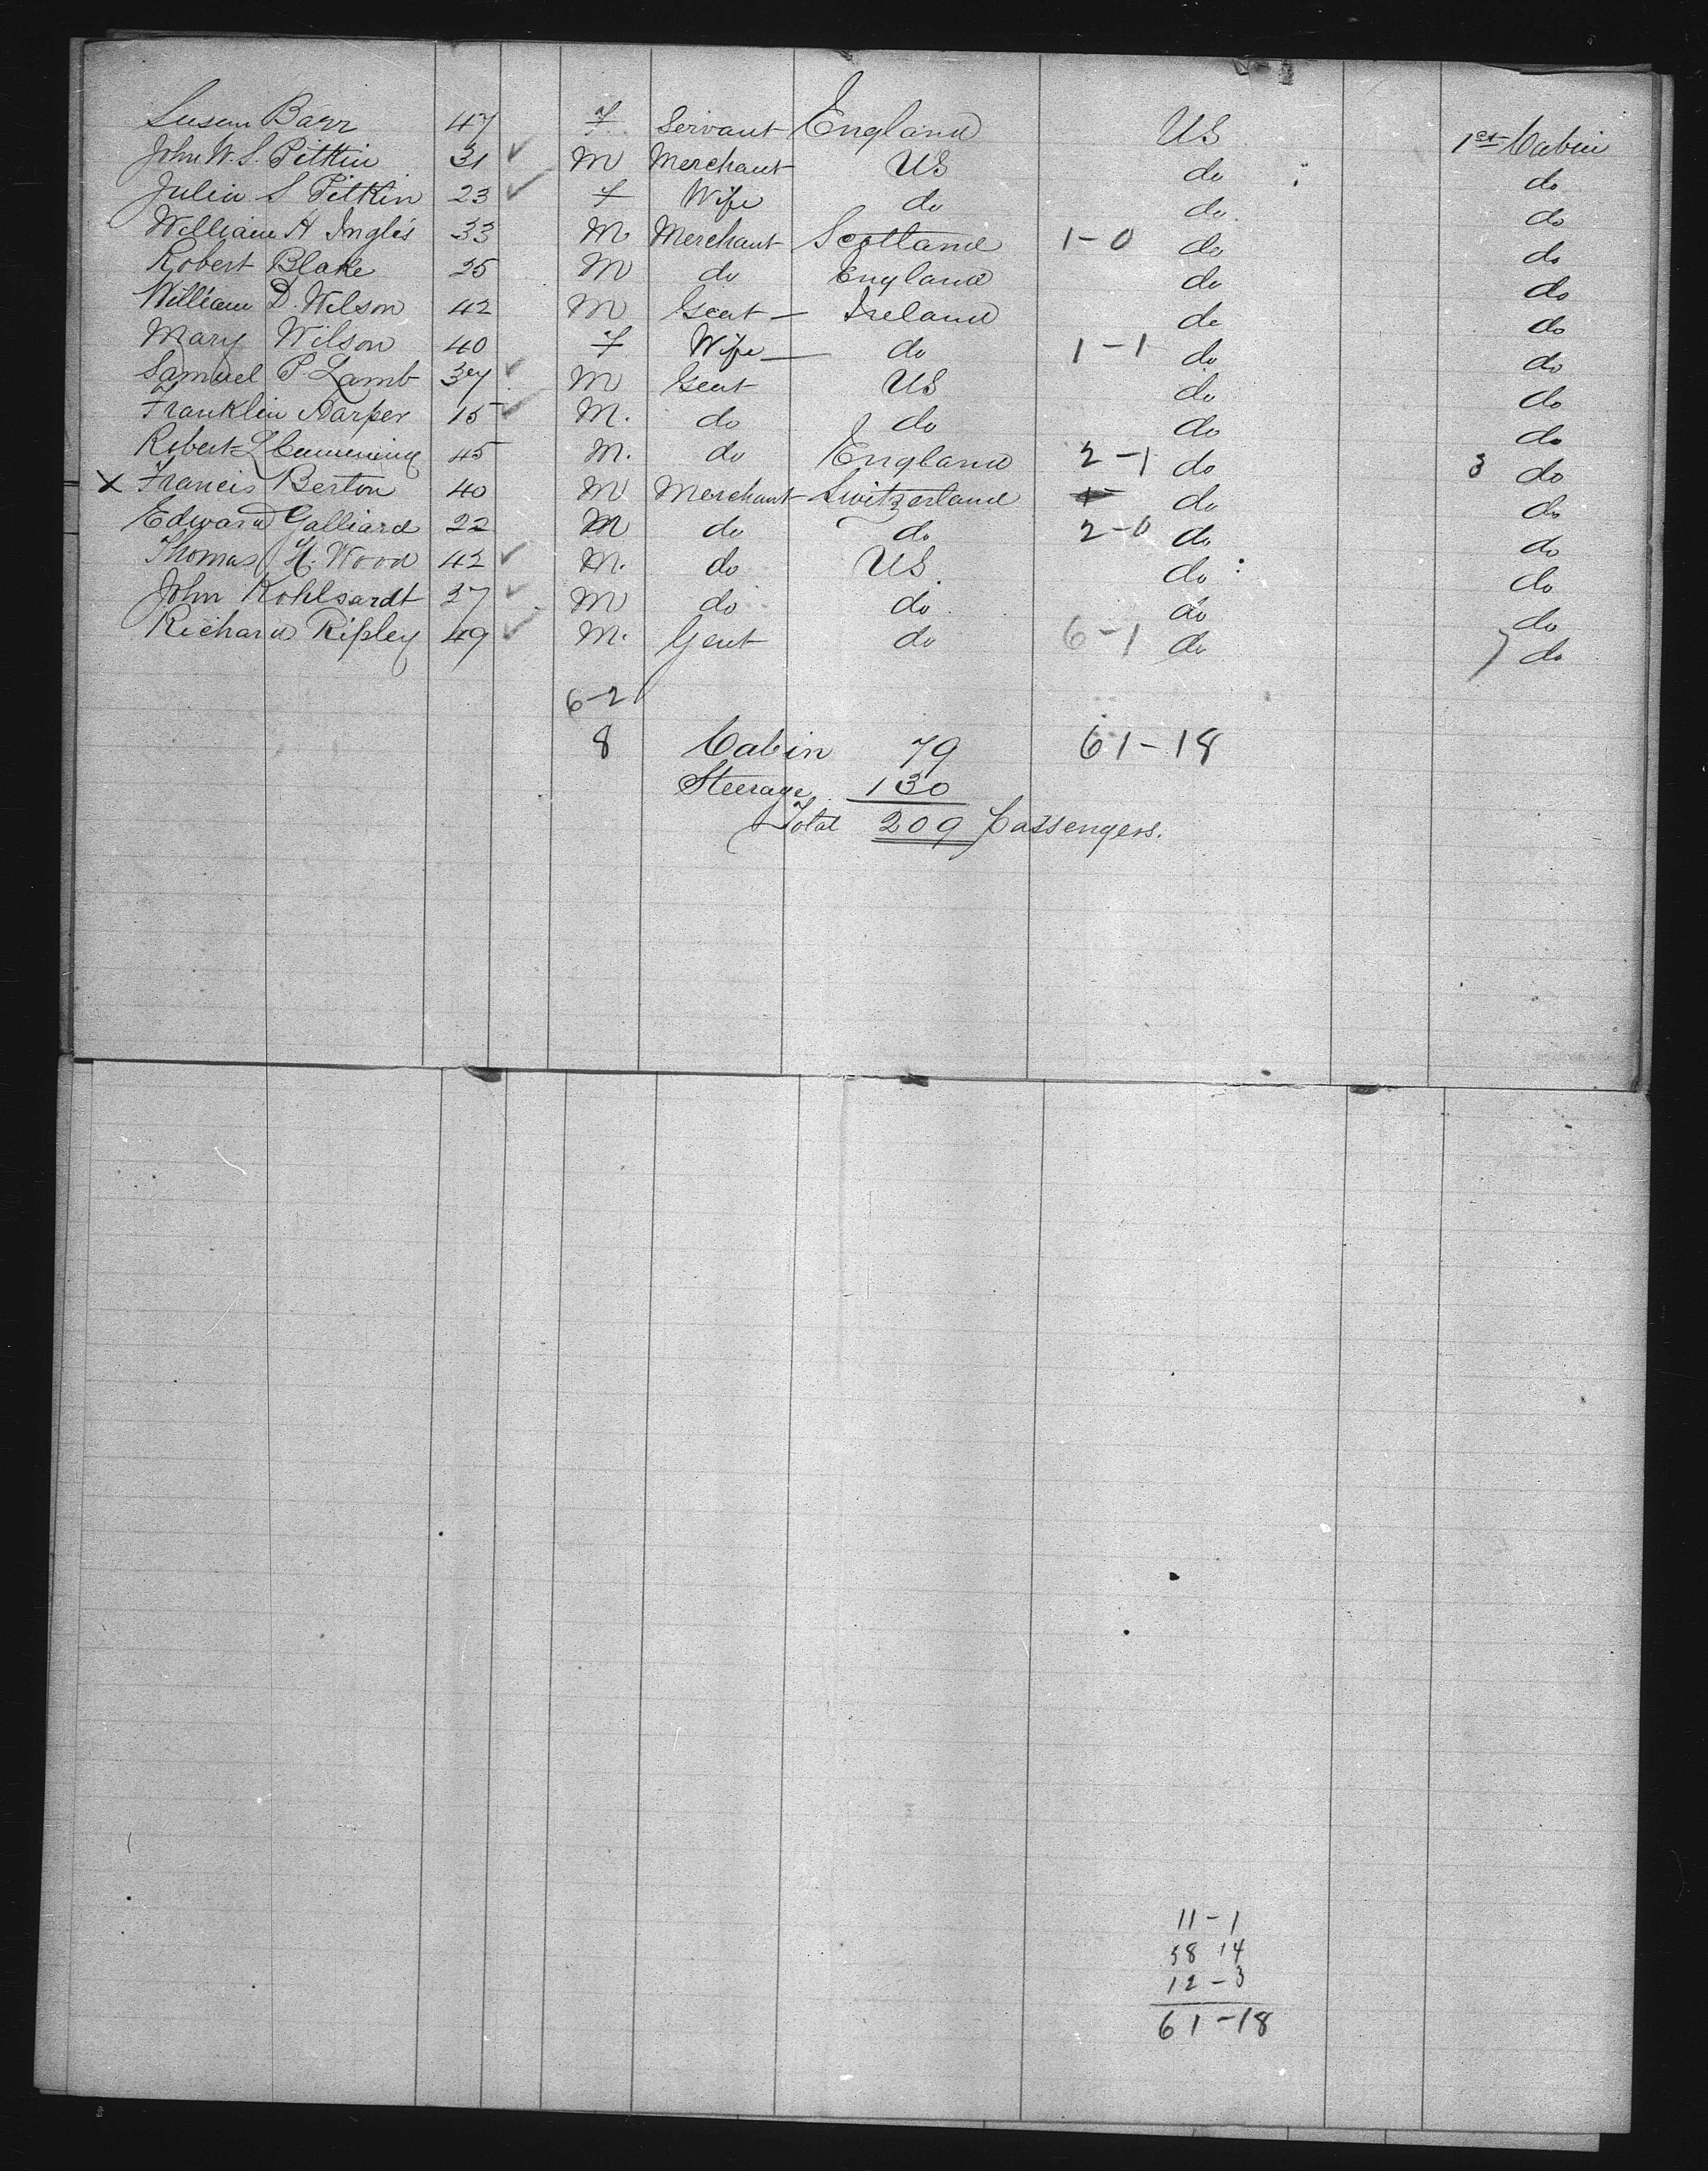 Susan Barr 47 F Servant England US 1st Cabin
John W. S. Pitkin 31 ✓ M Merchant US do do
Julia S Pitkin 23 ✓ F Wife do do do
William H Inglis 33 M Merchant Scotland 1-0 do do
Robert Blake 25 M do England do do
William D. Wilson 42 M Gent Ireland do do
Mary Wilson 40 F Wife do 1-1 do do
Samuel P. Lamb 37 ✓ M Gent US do do
Franklin Harper 15 ✓ M. do do do do
Robert L Cumming 45 M. do England 2-1 do 3 do
X Francis Berton 40 M Merchant Switzerland do do
Edward Galliard 22 M do do 2-0 do do
Thomas H. Wood 42 ✓ M. do US do do
John Kohlsardt 37 ✓ M do do do do
Richard Ripley 49 ✓ M. Gent do 6-1 do 7 do
6-2
8 Cabin 79 61-18
Steerage 130
Total 209 passengers.
11-1
38 14
12-3
61-18